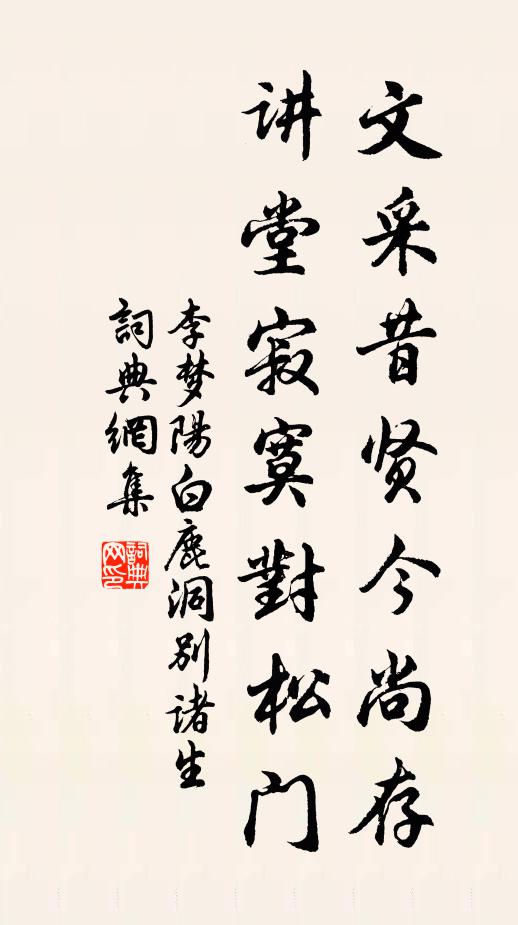 文采昔贤今尚存
讲堂寂寞對松门
李梦陽白鹿洞别诸生
詞典網集
詞典网印